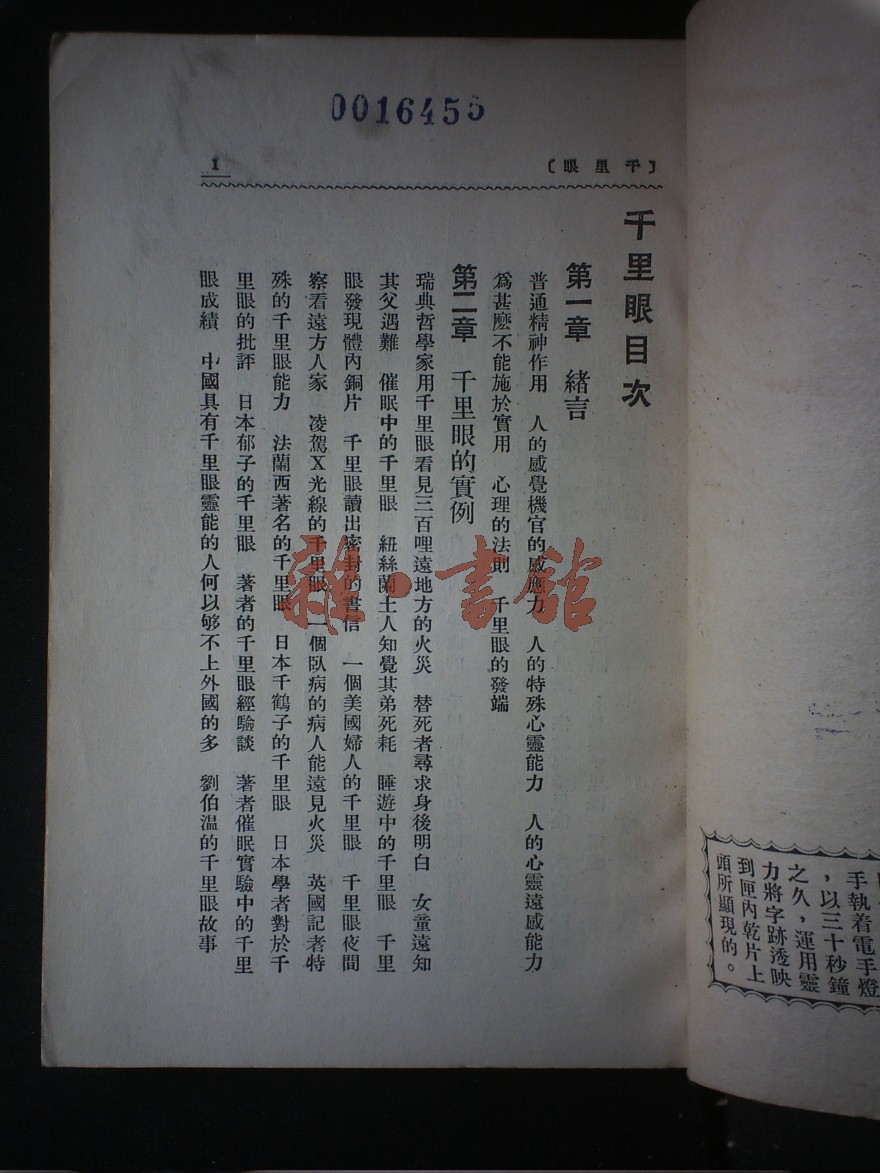 0016455
〔千里眼〕
1
千里眼目次
第一章　緒言
普通精神作用　人的感覺機官的感應力　人的特殊心靈能力　人的心靈遠感能力
爲甚麽不能施於實用　心理的法則　千里眼的發端
第二章　千里眼的實例
瑞典哲學家用千里眼看見三百哩遠地方的火災　替死者尋求身後明白　女童遠知
其父遇難　催眠中的千里眼　紐絲蘭土人知覺其弟死耗　睡遊中的千里眼　千里
眼發現體內銅片　千里眼讀出密封的書信　一個美國婦人的千里眼　千里眼夜間
察看遠方人家　凌駕X光線的千里眼　一個臥病的病人能遠見火災　英國記者特
殊的千里眼能力　法蘭西著名的千里眼　日本千鶴子的千里眼　日本學者對於千
里眼的批評　日本郁子的千里眼　著者的千里眼經驗談　著者催眠實驗中的千里
眼成績　中國具有千里眼靈能的人何以够不上外國的多　劉伯溫的千里眼故事
手執着電手燈
，以三十秒鐘
之久，運用靈
力將字跡透映
到匣內乾片上
頭所顯現的。
雜·書館